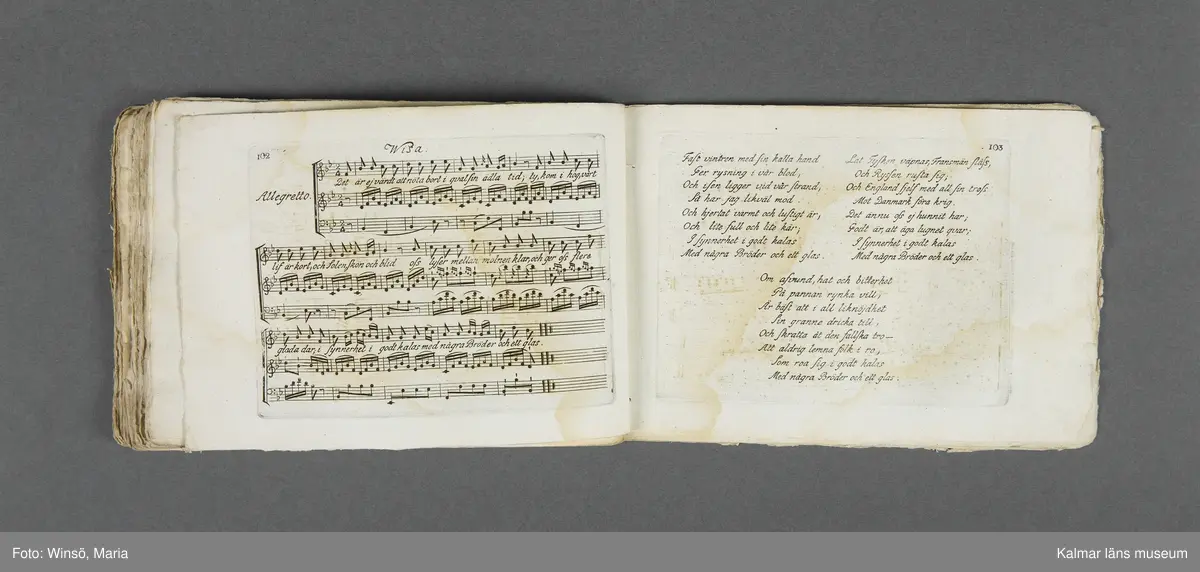 102
Wisa.
Allegretto.
Det är ej värdt att nöta bort i qval sin ädla tid, ty, kom i hog, vårt
lif är kort, och Solen skön och blid oſs lyser mellan molnen klar, och ger oſs flera
glada dar, i ſynnerhet i godt kalas med några Bröder och ett glas.
103
Faſt vintren med ſin kalla hand
Ger rysning i vår blod,
Och isen ligger vid vår ſtrand,
Så har jag likväl mod.
Och hjertat varmt och luſtigt är,
Och lite full och lite kär;
I ſynnerhet i godt kalas
Med några Bröder och ett glas.
Låt Tyſken väpnas, Fransman ſlåſs,
Och Ryſsen ruſta ſig;
Och England ſjelf med all ſin troſs
Mot Danmark föra krig.
Det ännu oſs ej hunnit har;
Godt är, att äga lugnet qvar;
I ſynnerhet i godt kalas
Med några Bröder och ett glas.
Om afvund, hat och bitterhet
På pannan rynka vill,
Är bäſt att i all liknöjdhet
Sin granne dricka till,
Och ſkratta åt den falſka tro—
Att aldrig lemna folk i ro,
Som roa ſig i godt kalas
Med några Bröder och ett glas.
Foto: Winsö, Maria
Kalmar läns museum